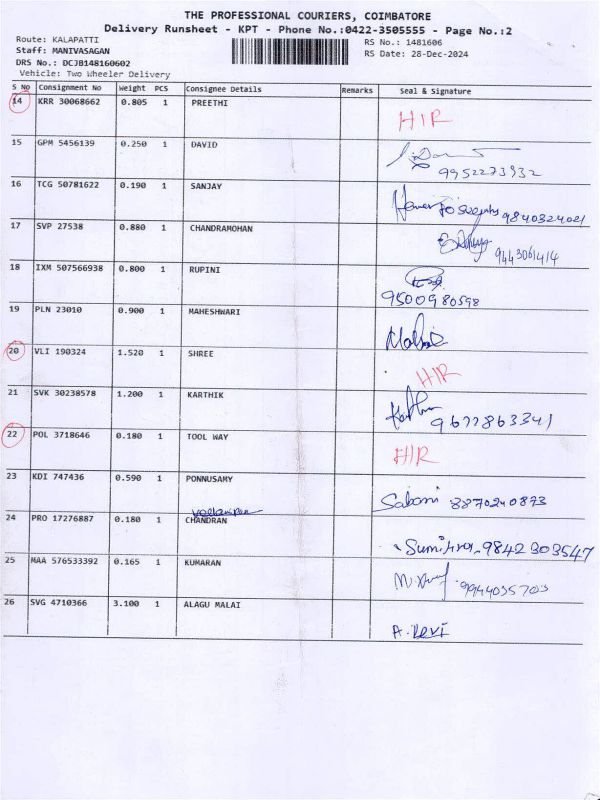 THE PROFESSIONAL COURIERS, COIMBATORE
Delivery Runsheet - KPT - Phone No.:0422-3505555 - Page No.:2
Route: KALAPATTI RS No.: 1481606
Staff: MANIVASAGAN RS Date: 28-Dec-2024
DRS No.: DCJB148160602
Vehicle: Two Wheeler Delivery
S No Consignment No Weight PCS Consignee Details Remarks Seal & Signature
14 KRR 30068662 0.805 1 PREETHI HIR
15 GPM 5456139 0.250 1 DAVID
9952273932
16 TCG 50781622 0.190 1 SANJAY 9840324021
17 SVP 27538 0.880 1 CHANDRAMOHAN
9443061414
18 IXM 507566938 0.800 1 RUPINI
9500980598
19 PLN 23010 0.900 1 MAHESHWARI
20 VLI 190324 1.520 1 SHREE HIR
21 SVK 30238578 1.200 1 KARTHIK
9677863341
22 POL 3718646 0.180 1 TOOL WAY HIR
23 KDI 747436 0.590 1 PONNUSAMY 8870240873
24 PRO 17276887 0.180 1 CHANDRAN
9842303547
25 MAA 576533392 0.165 1 KUMARAN
9944035703
26 SVG 4710366 3.100 1 ALAGU MALAI
A. Devi